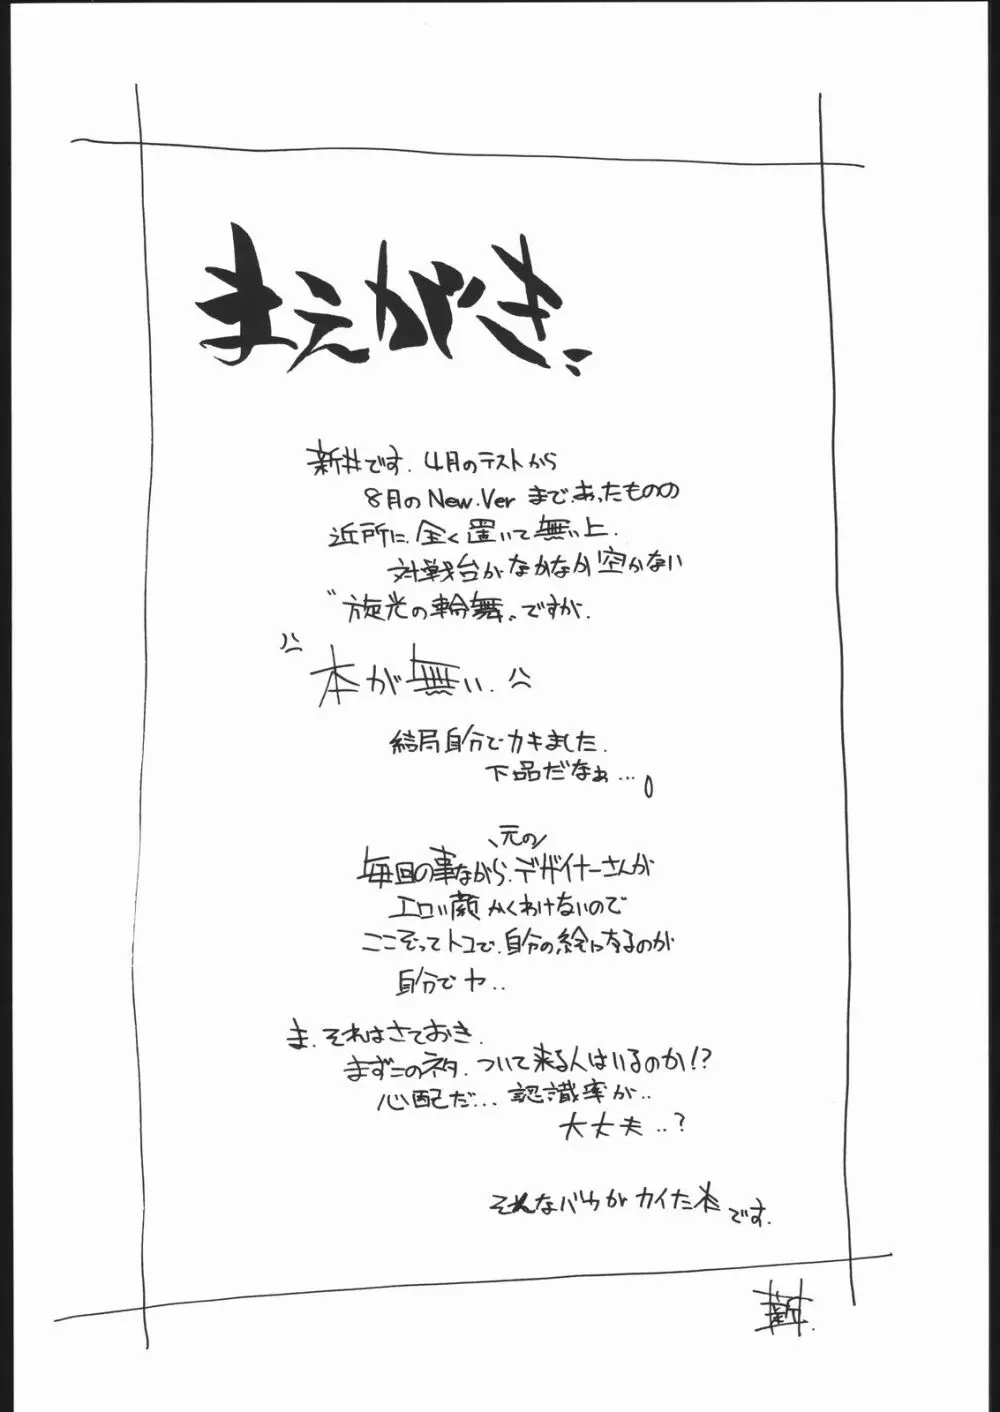 まえがき
新井です. 4月のテストから
8月の New.Ver まで.あったものの
近所に.全く置いて無い上.
対戦台がなかなか空かない
〝旋光の輪舞〟ですが.
本が無い.
結局自分でカキました.
下品だなぁ...
元の
毎回の事ながら.デザイナーさんが
エロい顔かくわけないので
ここぞってトコで.自分の絵になるのが
自分でヤ..
ま.それはさておき.
まずこのネタ.ついて来る人はいるのか!?
心配だ... 認識率が..
大丈夫..?
そんなバカがカイた本です.